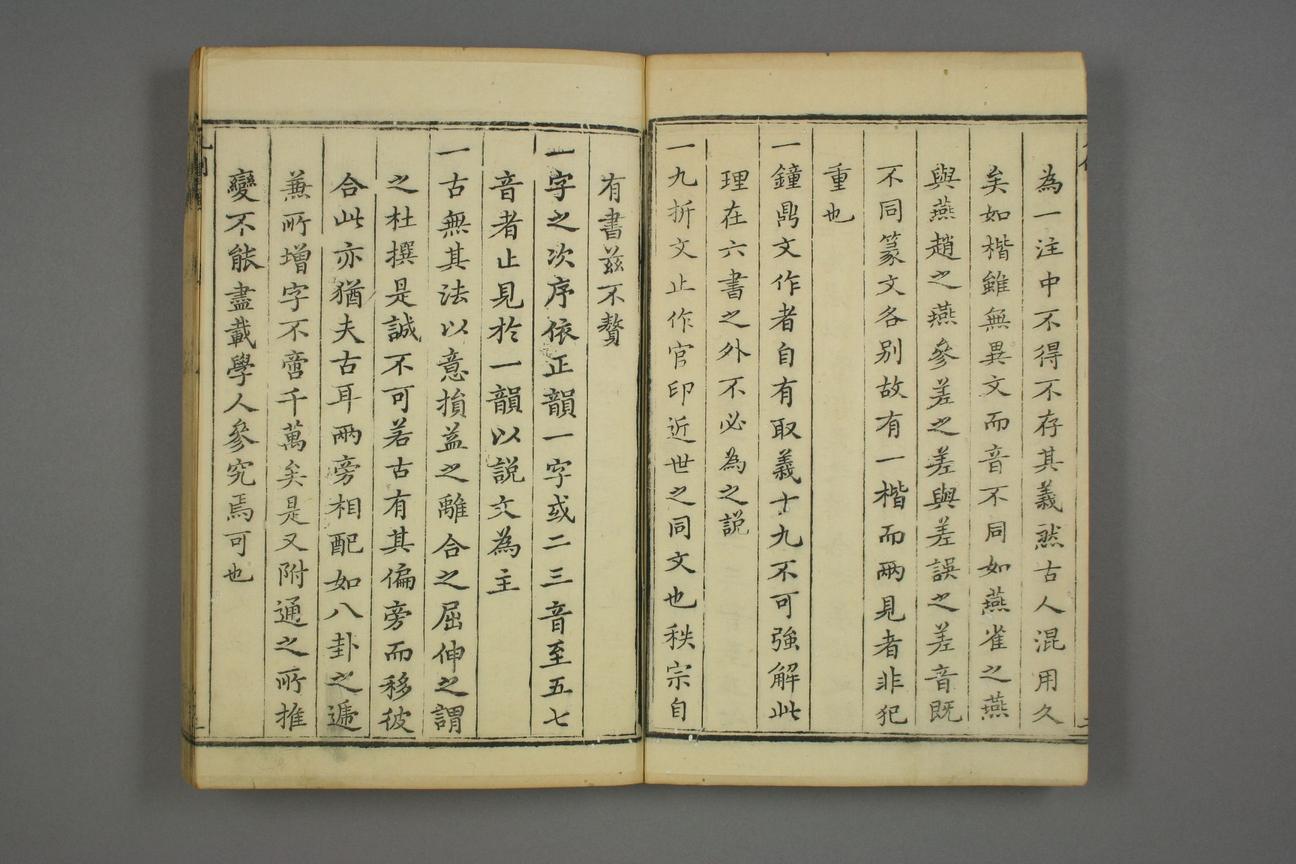 為一注中不得不存其義然古人混用久
矣如楷雖無異文而音不同如燕雀之燕
與燕趙之燕參差之差與差誤之差音既
不同篆文各別故有一楷而兩見者非犯
重也
一鐘鼎文作者自有取義十九不可強解此
理在六書之外不必為之說
一九折文止作官印近世之同文也秩宗自
有書茲不贅
一字之次序依正韻一字或二三音至五七
音者止見於一韻以說文為主
一古無其法以意損益之離合之屈伸之謂
之杜撰是誠不可若古有其偏旁而移彼
合此亦猶夫古耳兩旁相配如八卦之遞
兼所增字不啻千萬矣是又附通之所推
變不能盡載學人參究焉可也